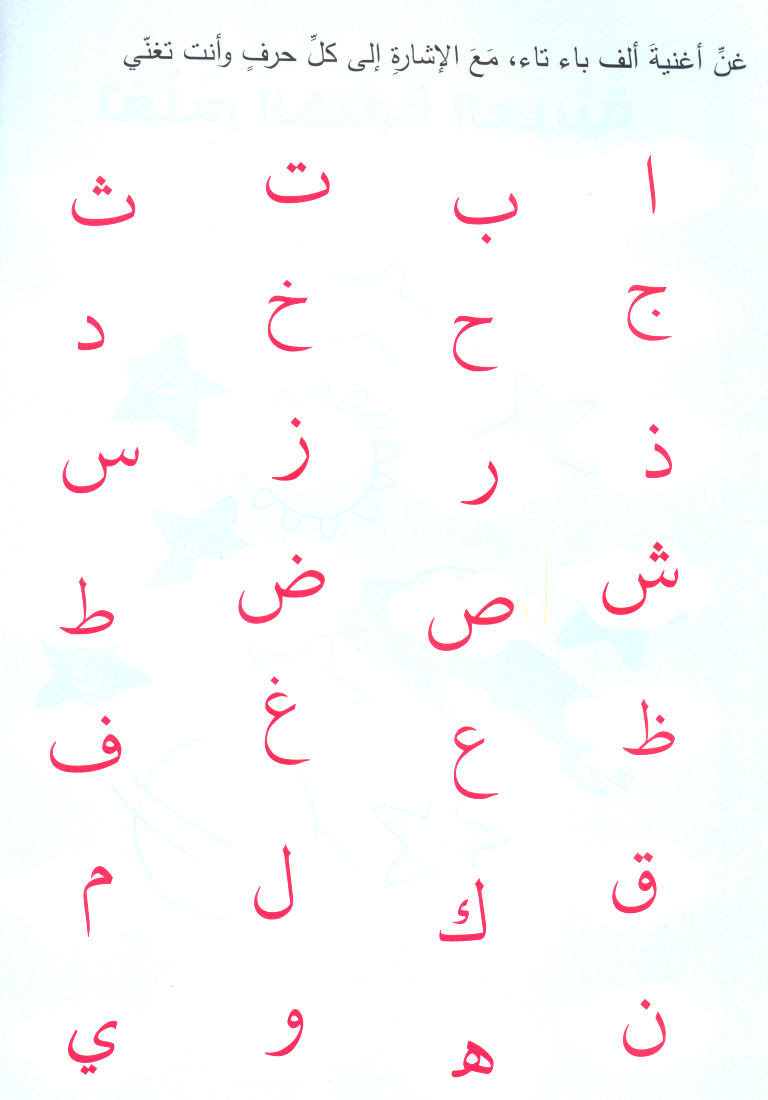 غنِّ أغنيةَ ألف باء تاء، مَعَ الإشارةِ إلى كلِّ حرفٍ وأنت تغنّي
ا ب ت ث
ج ح خ د
ذ ر ز س
ش ص ض ط
ظ ع غ ف
ق ك ل م
ن ه و ي